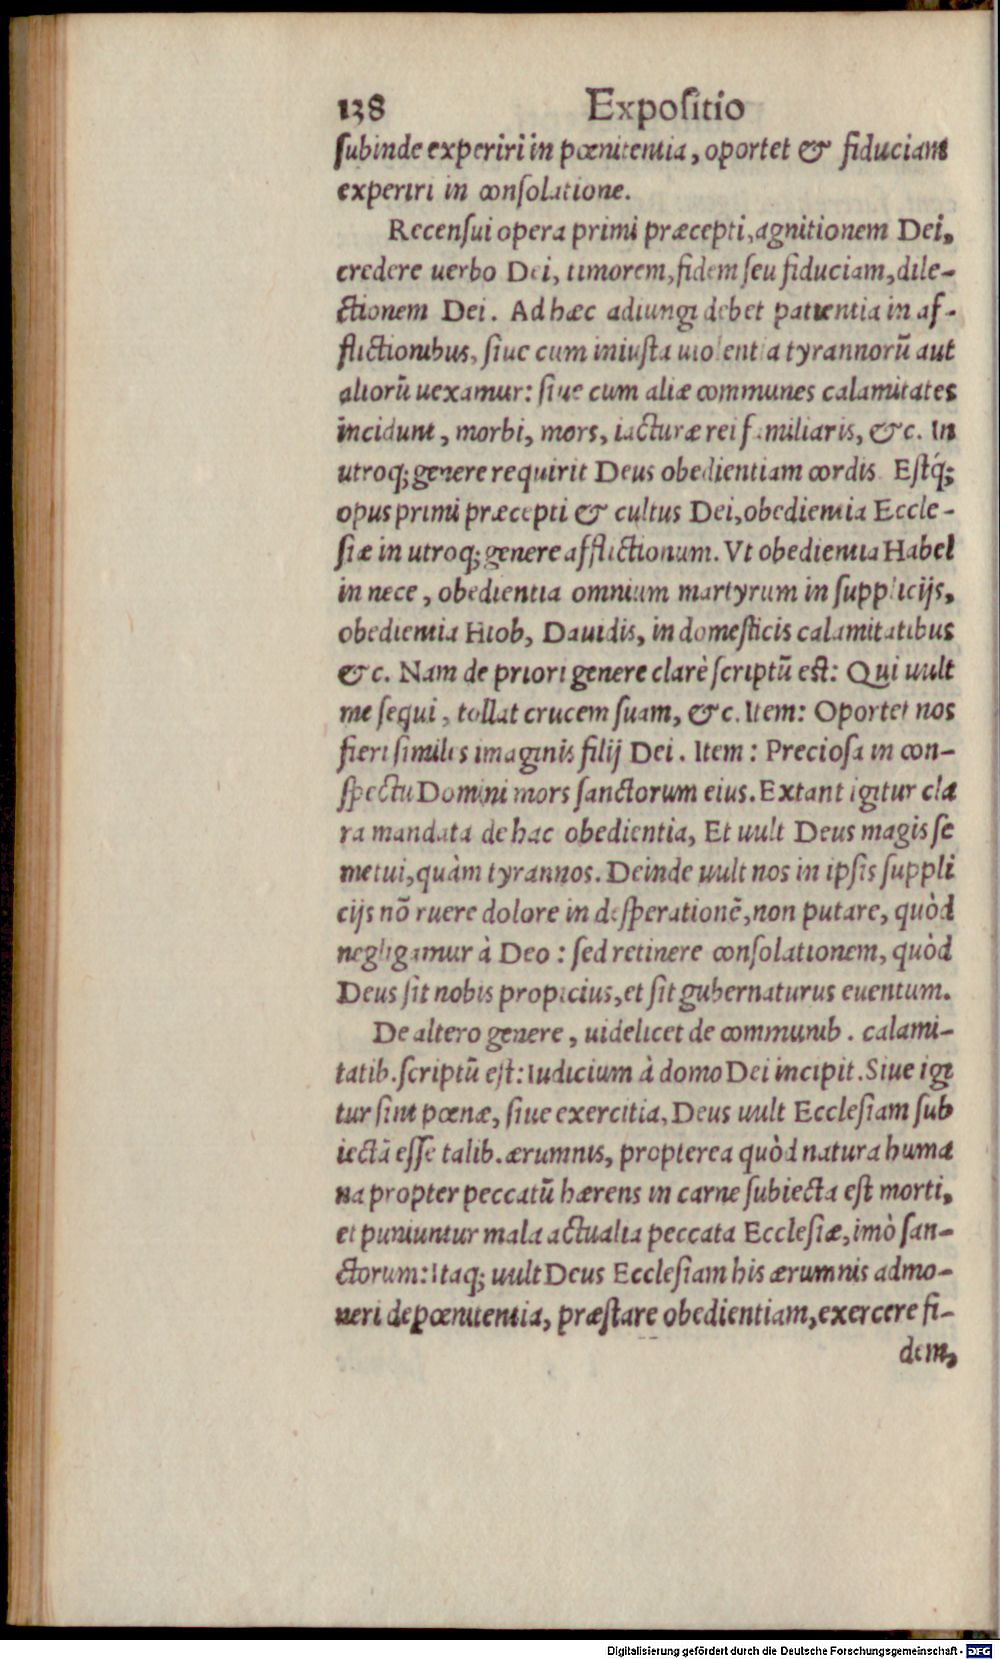 138 Expositio
subinde experiri in pœnitentia, oportet & fiduciam
experiri in consolatione.
Recensui opera primi præcepti, agnitionem Dei,
credere uerbo Dei, timorem, fidem seu fiduciam, dile-
ctionem Dei. Ad hæc adiungi debet patientia in af-
flictionibus, siue cum iniusta uiolentia tyrannorũ aut
aliorũ uexamur: siue cum aliæ communes calamitates
incidunt, morbi, mors, iacturæ rei familiaris, &c. In
utroq; genere requirit Deus obedientiam cordis. Estq́;
opus primi præcepti & cultus Dei, obedientia Eccle-
siæ in utroq; genere afflictionum. Vt obedientia Habel
in nece, obedientia omnium martyrum in supplicijs,
obedientia Hiob, Dauidis, in domesticis calamitatibus
&c. Nam de priori genere clarè scriptũ est: Qui uult
me sequi, tollat crucem suam, &c. Item: Oportet nos
fieri similes imaginis filij Dei. Item: Preciosa in con-
spectu Domini mors sanctorum eius. Extant igitur cla
ra mandata de hac obedientia, Et uult Deus magis se
metui, quàm tyrannos. Deinde uult nos in ipsis suppli
cijs nõ ruere dolore in desperationẽ, non putare, quòd
negligamur à Deo: sed retinere consolationem, quòd
Deus sit nobis propicius, et sit gubernaturus euentum.
De altero genere, uidelicet de communib. calami-
tatib. scriptũ est: Iudicium à domo Dei incipit. Siue igi
tur sint pœnæ, siue exercitia, Deus uult Ecclesiam sub
iectã esse talib. ærumnis, propterea quòd natura huma
na propter peccatũ hærens in carne subiecta est morti,
et puniuntur mala actualia peccata Ecclesiæ, imò san-
ctorum: Itaq; uult Deus Ecclesiam his ærumnis admo-
neri de pœnitentia, præstare obedientiam, exercere fi-
dem,
Digitalisierung gefördert durch die Deutsche Forschungsgemeinschaft - DFG